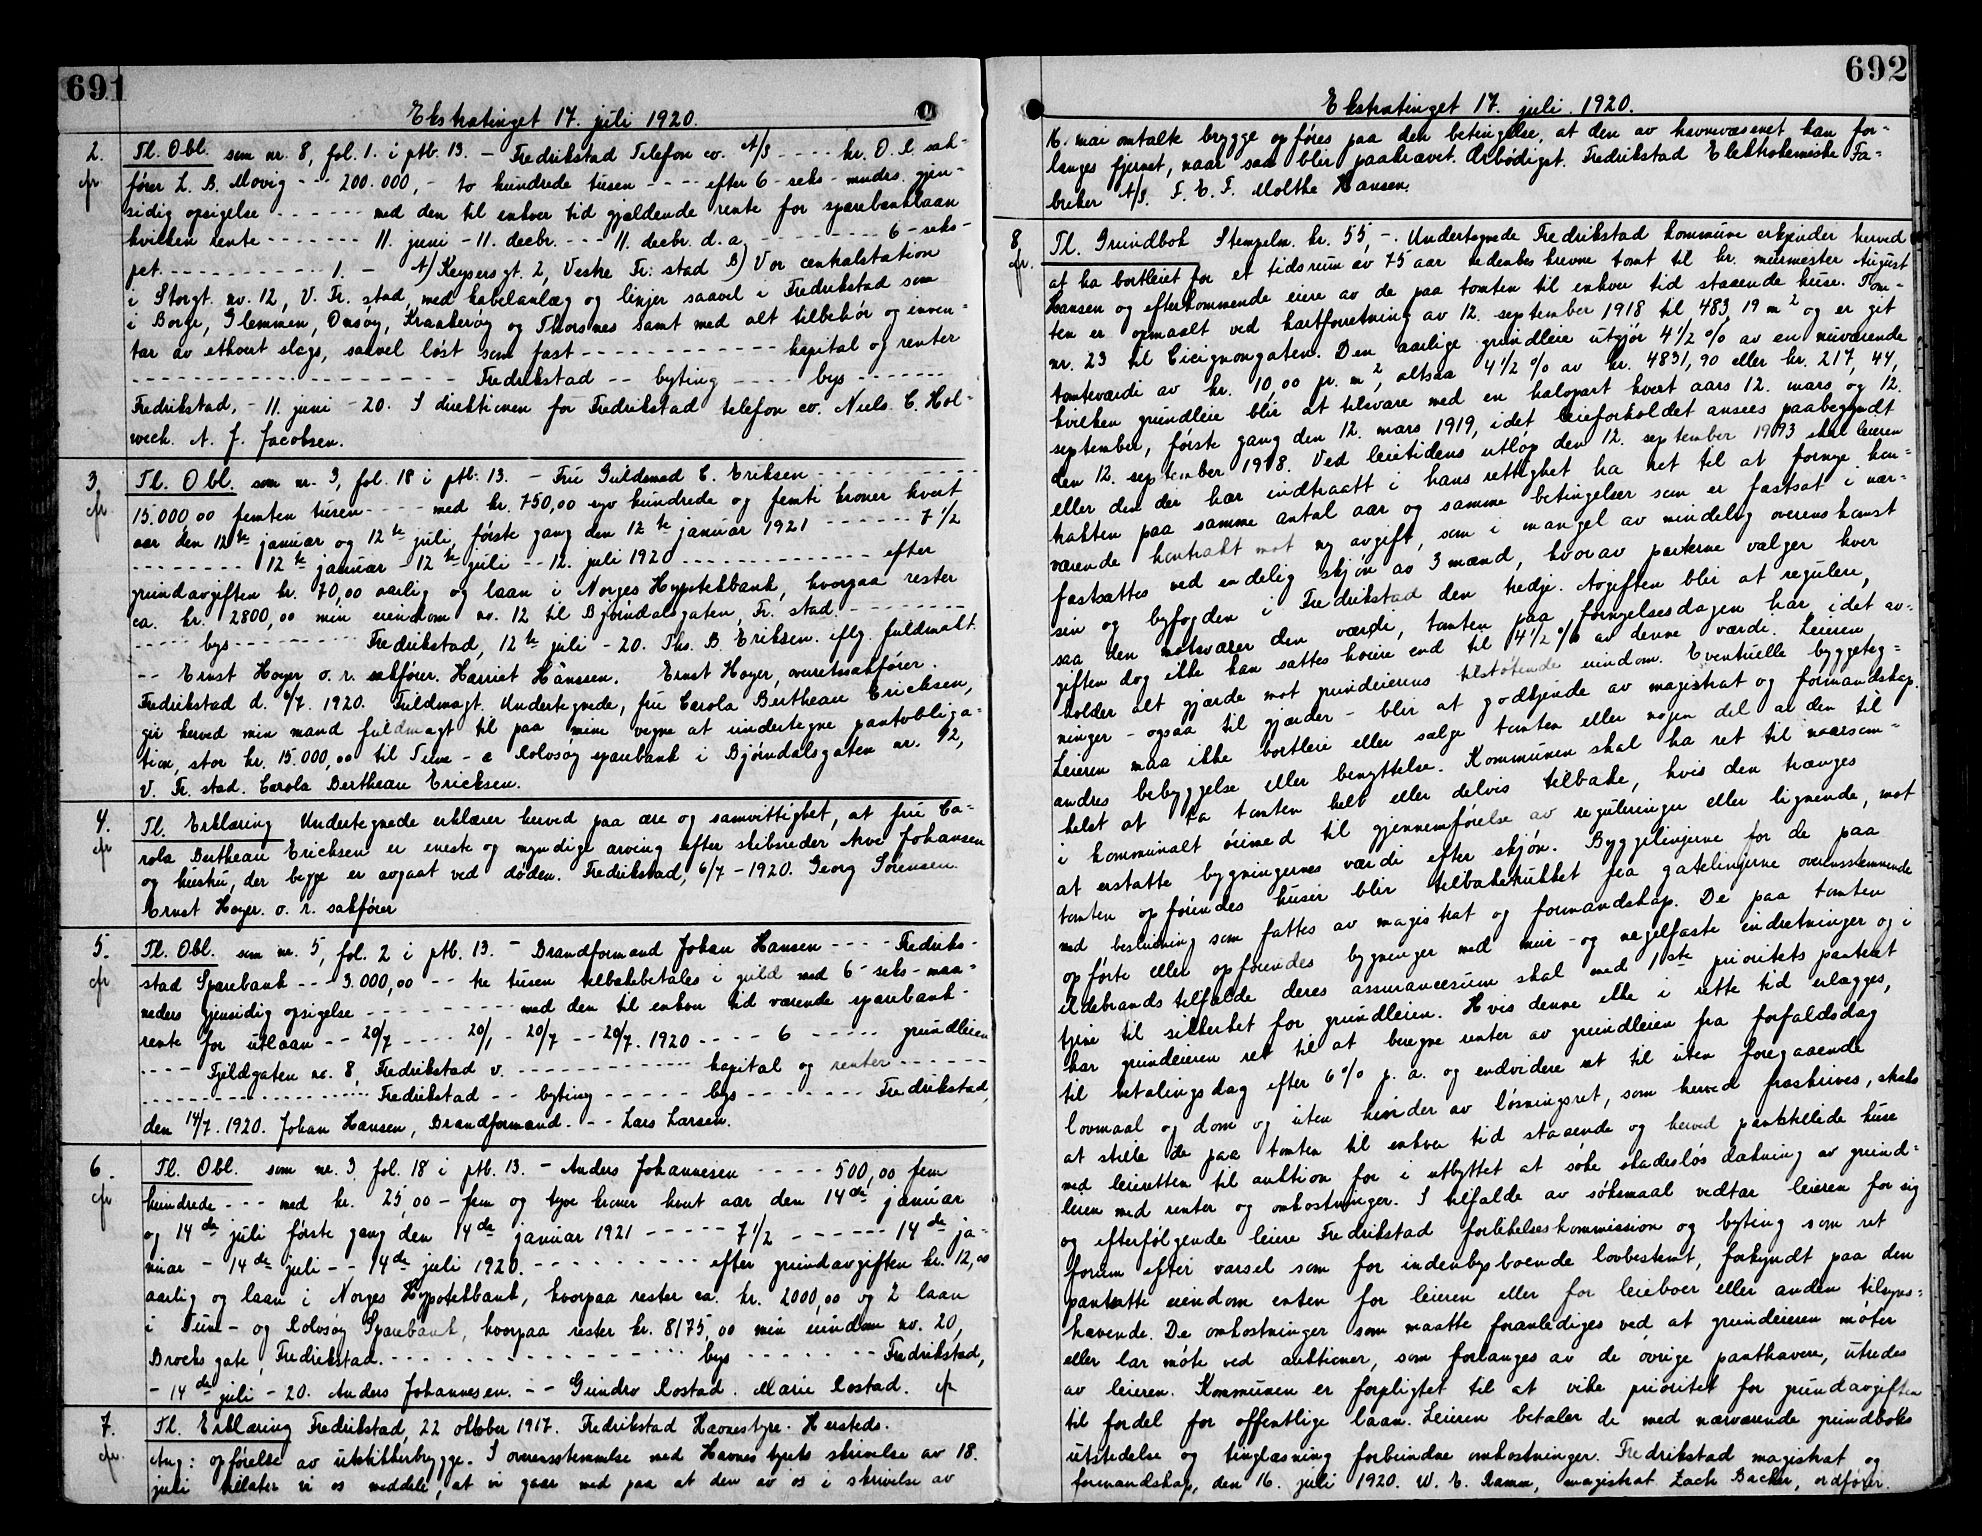 691
Ekstratinget 17. juli 1920.
2. Tl. Obl. som nr. 8, fol. 1. i ptb. 13. - Fredrikstad Telefon co. A/S - - - - kr. O. R. sak-
cfr fører L. B. Movig - - - 200.000,- to hundrede tusen - - - - efter 6 - seks - mndrs. gjen-
sidig opsigelse - - - - - med den til enhver tid gjældende rente for sparebanklaan
hvilken rente - - - - - - - 11. juni - 11. decbr. - - - 11. decbr. d. a. - - - - - - - - - 6 - seks -
pct. - - - - - - - - - - - 1. - A) Keysersgt. 2, Vestre Fr: stad B) Vor centralstation
i Storgt. nr. 12, V. Fr. stad, med kabelanlæg og linjer saavel i Fredrikstad som
i Borge, Glemmen, Onsøy, Kraakerøy og Thorsnes samt med alt tilbehør og inven-
tar av ethvert slags, saavel løst som fast - - - - - - - - - - - - kapital og renter
- - - - - - - - - - - - - - - - - - - - Fredrikstad - - byting - - - - bys - - - - - - -
Fredrikstad, - 11. juni - 20. I direktionen for Fredrikstad telefon co. Niels C. Hol-
wech. A. J. Jacobsen.
3. Tl. Obl. som nr. 3, fol. 18 i ptb. 13. - Fru Guldsmed C. Eriksen - - - - - - - - - - -
cfr 15.000,00 femten tusen - - - - med kr. 750,00 syv hundrede og femti kroner hvert
aar den 12te januar og 12te juli, første gang den 12te januar 1921 - - - - - - 7 1/2
- - - - - - - - - 12te januar - 12te juli - - 12. juli 1920 - - - - - - - - - - - - - efter
grundavgiften kr. 70,00 aarlig og laan i Norges Hypotekbank, hvorpaa rester
ca. kr. 2800,00 min eiendom nr. 12 til Bjørndalsgaten, Fr. stad. - - - - - - - -
- - - - - bys - - - - - - - - Fredrikstad, 12te juli - 20. Ths. B. Eriksen. iflg. fuldmakt.
- - Ernst Høyer o. r. sakfører. Harriet Hanssen. Ernst Høyer, overretssakfører.
Fredrikstad d. 6/7. 1920. Fuldmagt. Undertegnede, fru Carola Bertheau Ericksen,
gir herved min mand fuldmagt til paa mine vegne at undertegne pantobliga-
tion, stor kr. 15.000,00 til Tune- & Rolvsøy sparebank i Bjørndalsgaten nr. 12,
V. Fr. stad. Carola Bertheau Ericksen.
4. Tl. Erklæring Undertegnede erklærer herved paa ære og samvittighet, at fru Ca-
cfr rola Bertheau Ericksen er eneste og myndige arving efter skibsreder Arve Johansen
og hustru, der begge er avgaat ved døden. Fredrikstad, 6/7 - 1920. Georg Sørensen
Ernst Høyer. o. r. sakfører
5. Tl. Obl. som nr. 5, fol. 2 i ptb. 13. - Brandformand Johan Hansen - - - - Fredrik-
cfr stad Sparebank - - - 3.000,00 - - tre tusen tilbakebetales i guld med 6 - seks - maa-
neders gjensidig opsigelse - - - - - - - - - - med den til enhver tid værende sparebank-
rente for utlaan - - 20/7 - - - - 20/1 - 20/7 - - 20/7. 1920 - - - - 6 - - - - - grundleien
- - - - Fjeldgaten nr. 8, Fredrikstad v. - - - - - - - - - - - - kapital og renter - - - - - -
- - - - - - - - - - - - - - - Fredrikstad - - byting - - - - - - bys - - - - - - - - Fredrikstad,
den 14/7. 1920. Johan Hansen, Brandformand. - - Lars Larsen.
6. Tl. Obl. som nr. 3. fol. 18 i ptb. 13. - Anders Johannesen - - - - 500,00 fem
cfr hundrede - - - med kr. 25,00 - fem og tyve kroner hvert aar den 14de januar
og 14de juli første gang den 14de januar 1921 - - - - - 7 1/2 - - - - - - 14de ja-
nuar - 14de juli - - 14de juli 1920. - - - - - - - - - - efter grundavgiften kr. 12,00
aarlig og laan i Norges Hypotekbank, hvorpaa rester ca. kr. 2000,00 og 2 laan
i Tune- og Rolvsøy Sparebank, hvorpaa rester kr. 8175,00 min eiendom nr. 20,
Brochs gate, Fredrikstad. - - - - - - - - - - - - - - - bys - - - - - - - Fredrikstad,
- 14de juli - 20. Anders Johannesen. - - Gundro Rostad. Marie Rostad. cfr
7. Tl. Erklæring Fredrikstad, 22 oktober 1917. Fredrikstad Havnestyre. Herstede.
cfr. Ang: opførelse av utstikkerbrygge. I overensstemmelse med Havnestyrets skrivelse av 18.
juni tillater vi os meddele, at vi gaar med paa at den av os i skrivelse av
692
Ekstratinget 17. juli 1920.
16. mai omtalte brygge opføres paa den betingelse, at den av havnevæsenet kan for-
langes fjernet, naar saa blir paakrævet. Ærbødigst. Fredrikstad Elektrokemiske Fa-
briker A/S. F. E. F. Molthe Hansen.
8. Tl. Grundbok Stempelm. kr. 55,-. Undertegnede Fredrikstad kommune erkjender herved
cfr. at ha bortleiet for et tidsrum av 75 aar nedenbeskrevne tomt til hr. murmester August
Hansen og efterkommende eiere av de paa tomten til enhver tid staaende huse. Tom-
ten er opmaalt ved kartforretning av 12. september 1918 til 483,19 m2 og er git
nr. 23 til Cicignongaten. Den aarlige grundleie utgjør 4 1/2 % av en nuværende
tomteværdi av kr. 10,00 pr. m2, altsaa 4 1/2 % av kr. 4831,90 eller kr. 217,44,
hvilken grundleie blir at tilsvare med en halvpart hvert aars 12. mars og 12.
september, første gang den 12. mars 1919, idet leieforholdet ansees paabegyndt
den 12. september 1918. Ved leietidens utløp den 12. september 1993 skal leieren
eller den der har indtraatt i hans rettighet ha ret til at fornye kon-
trakten paa samme antal aar og samme betingelser som er fastsat i nær-
værende kontrakt mot ny avgift, som i mangel av mindelig overenskomst
fastsættes ved endelig skjøn av 3 mænd, hvorav parterne vælger hver
sin og byfogden i Fredrikstad den tredje. Avgiften blir at regulere,
saa den motsvarer den værdi, tomten paa fornyelsesdagen har, idet av-
giften dog ikke kan sættes høiere end til 4 1/2 % av denne værdi. Leieren
holder alt gjærde mot grundeierens tilstøtende eiendom. Eventuelle byggeteg-
ninger - ogsaa til gjærder - blir at godkjende av magistrat og formandskap.
Leieren maa ikke bortleie eller sælge tomten eller nogen del av den til
andres bebyggelse eller benyttelse. Kommunen skal ha ret til naarsom-
helst at ta tomten helt eller delvis tilbake, hvis den trænges
i kommunalt øiemed til gjennemførelse av reguleringer eller lignende, mot
at erstatte bygningernes værdi efter skjøn. Byggelinjerne for de paa
tomten opførendes huser blir tilbaketrukket fra gatelinjerne overensstemmende
med beslutning som fattes av magistrat og formandskap. De paa tomten
opførte eller opførendes bygninger med mur- og nagelfaste indretninger og i
ildebrandstilfælde deres assurancesum skal med 1ste prioritets panteret
tjene til sikkerhet for grundleien. Hvis denne ikke i rette tid erlægges,
har grundeieren ret til at beregne renter av grundleien fra forfaldsdag
til betalingsdag efter 6 % p. a. og endvidere ret til uten foregaaende
lovmaal og dom og uten hinder av løsningsret, som herved fraskrives, straks
at stille de paa tomten til enhver tid staaende og herved pantstillede huse
med leieretten til auktion for i utbyttet at søke skadesløs dækning av grund-
leien med renter og omkostninger. I tilfælde av søksmaal vedtar leieren for sig
og efterfølgende leiere Fredrikstad forlikelseskommission og byting som ret
forum efter varsel som for indenbysboende lovbestemt, forkyndt paa den
pantsatte eiendom enten for leieren eller for leieboer eller anden tilsyns-
havende. De omkostninger som maatte foranlediges ved at grundeieren møter
eller lar møte ved auktioner, som forlanges av de øvrige panthavere, utredes
av leieren. Kommunen er forpligtet til at vike prioritet for grundavgiften
til fordel for offentlige laan. Leieren betaler de med nærværende grundboks
utstedelse og tinglæsning forbundne omkostninger. Fredrikstad magistrat og
formandskap, den 16. juli 1920. W. E. Ramm, magistrat. Zach Backer, ordfører.